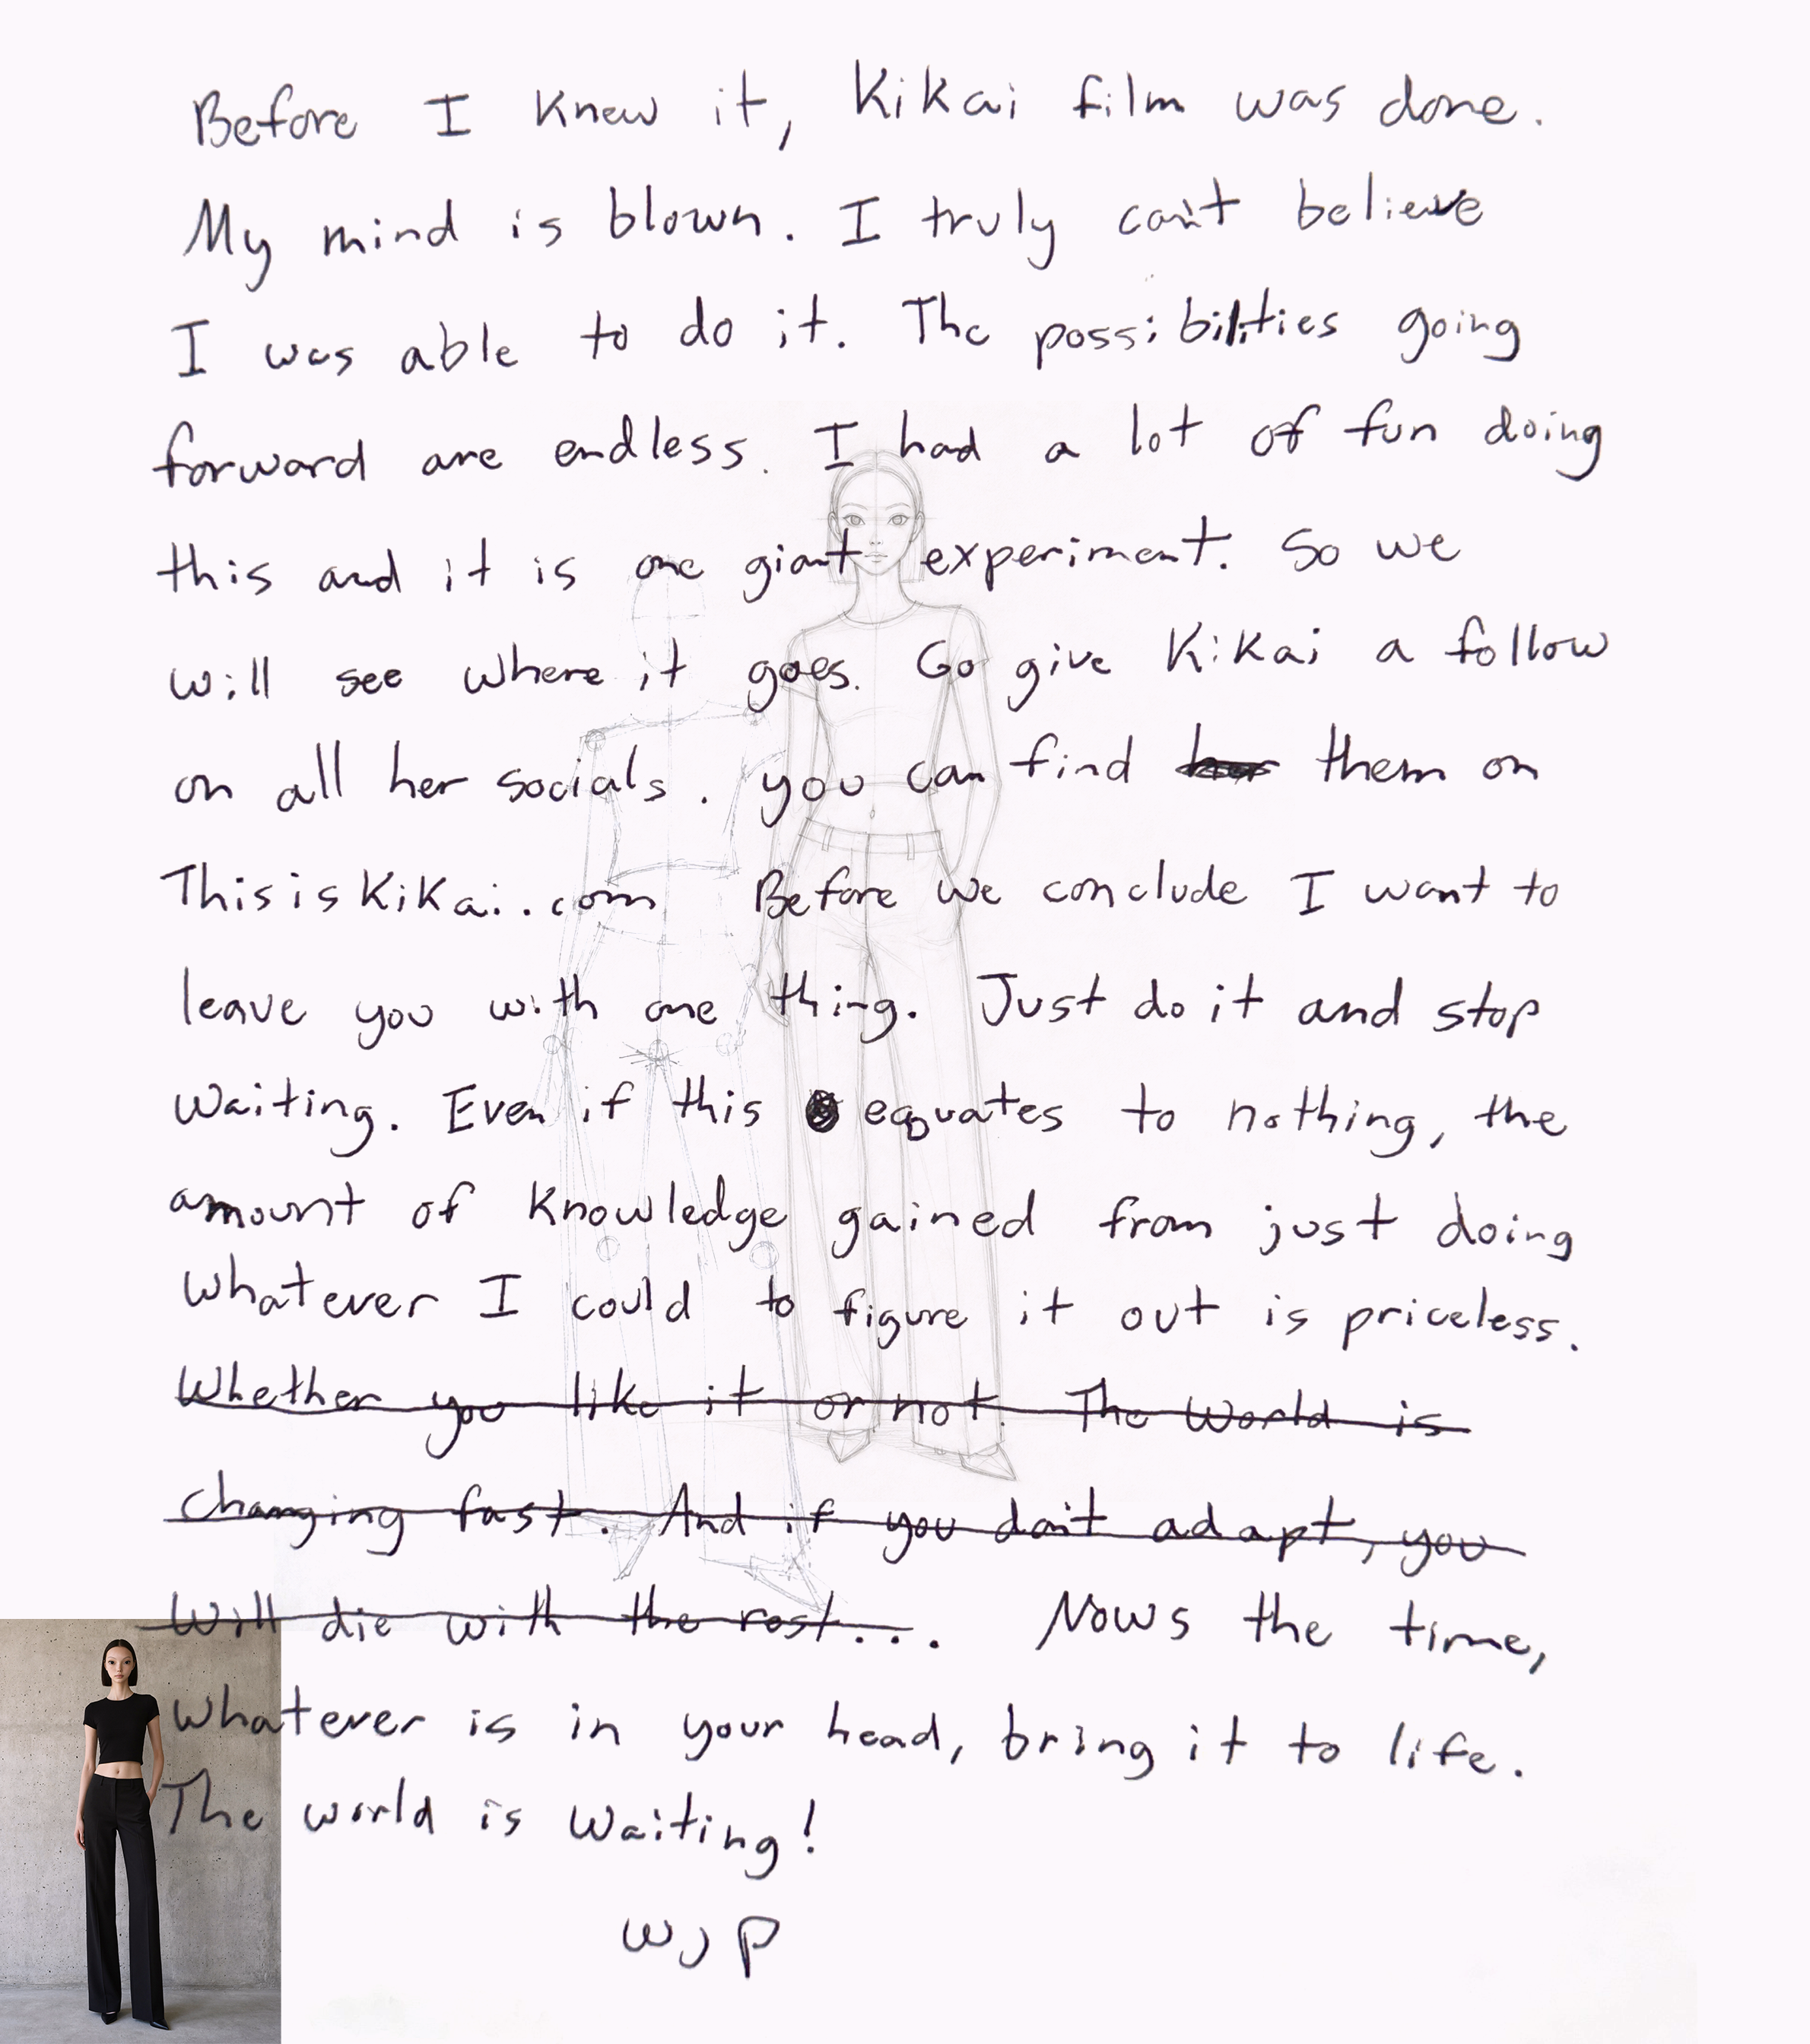 Before I knew it, Kikai film was done.
My mind is blown. I truly can't believe
I was able to do it. The possibilities going
forward are endless. I had a lot of fun doing
this and it is one giant experiment. So we
will see where it goes. Go give Kikai a follow
on all her socials. you can find her them on
ThisisKiKai.com Before we conclude I want to
leave you with one thing. Just do it and stop
waiting. Even if this equates to nothing, the
amount of knowledge gained from just doing
whatever I could to figure it out is priceless.
Whether you like it or not. The World is
changing fast. And if you don't adapt, you
will die with the rest... Nows the time,
whatever is in your head, bring it to life.
The world is waiting!
WJP